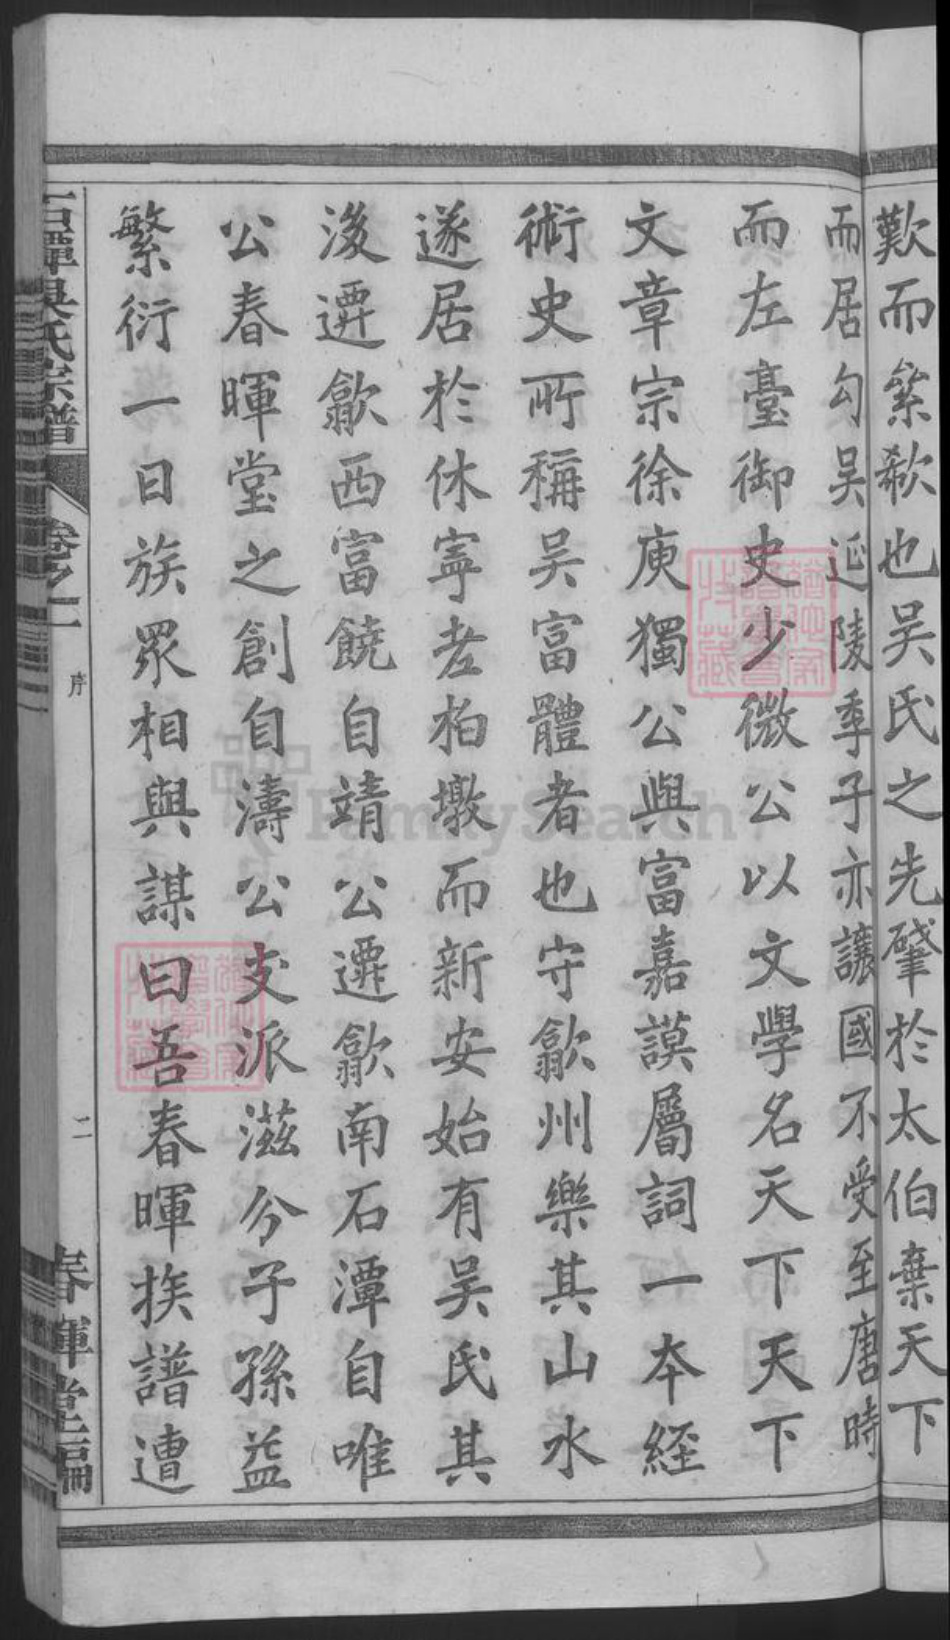 歎而絫欷也吴氏之先肇於太伯棄天下
而居勾吴延陵季子亦讓國不受至唐時
而左臺御史少微公以文學名天下天下
文章宗徐庾獨公與富嘉謨屬詞一本経
術史所稱吴富體者也守歙州樂其山水
遂居於休寧老柏墩而新安始有吴氏其
後遷歙西富饒自靖公遷歙南石潭自唯
公春暉堂之創自濤公支派滋分子孫益
繁衍一日族眾相與謀曰吾春暉族譜遭
石潭吳氏宗譜
卷之一
序
二
春暉堂編
FamilySearch